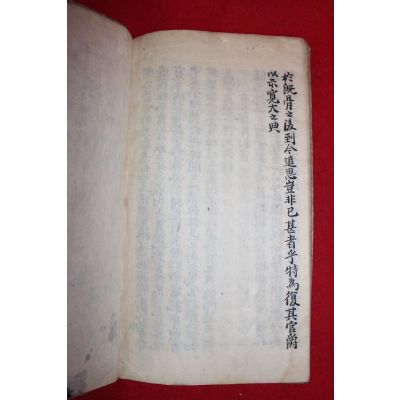 於既骨之後到今追思豈非已甚者乎特爲復其官爵
以示寬大之典